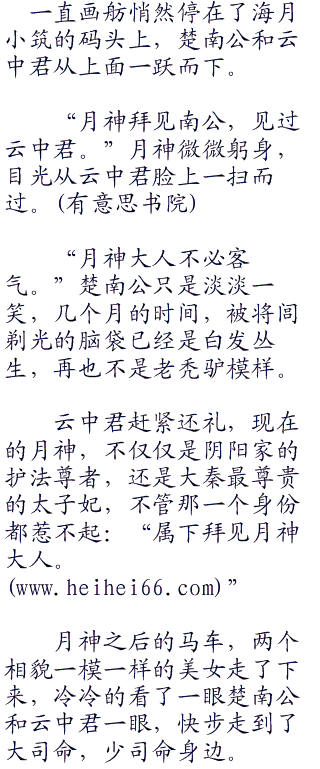 一直画舫悄然停在了海月
小筑的码头上，楚南公和云
中君从上面一跃而下。
“月神拜见南公，见过
云中君。”月神微微躬身，
目光从云中君脸上一扫而
过。(有意思书院)
“月神大人不必客
气。”楚南公只是淡淡一
笑，几个月的时间，被将闾
剃光的脑袋已经是白发丛
生，再也不是老秃驴模样。
云中君赶紧还礼，现在
的月神，不仅仅是阴阳家的
护法尊者，还是大秦最尊贵
的太子妃，不管那一个身份
都惹不起：“属下拜见月神
大人。
(www.heihei66.com)”
月神之后的马车，两个
相貌一模一样的美女走了下
来，冷冷的看了一眼楚南公
和云中君一眼，快步走到了
大司命，少司命身边。